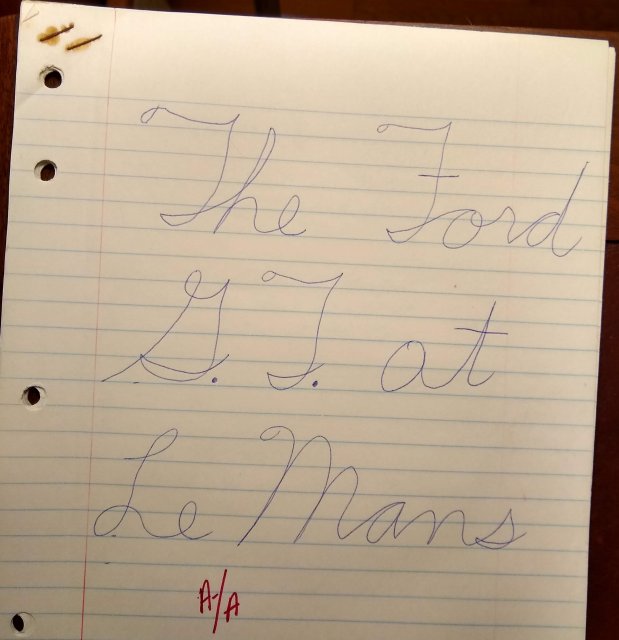 The Ford
G.T. at
Le Mans
A-/A